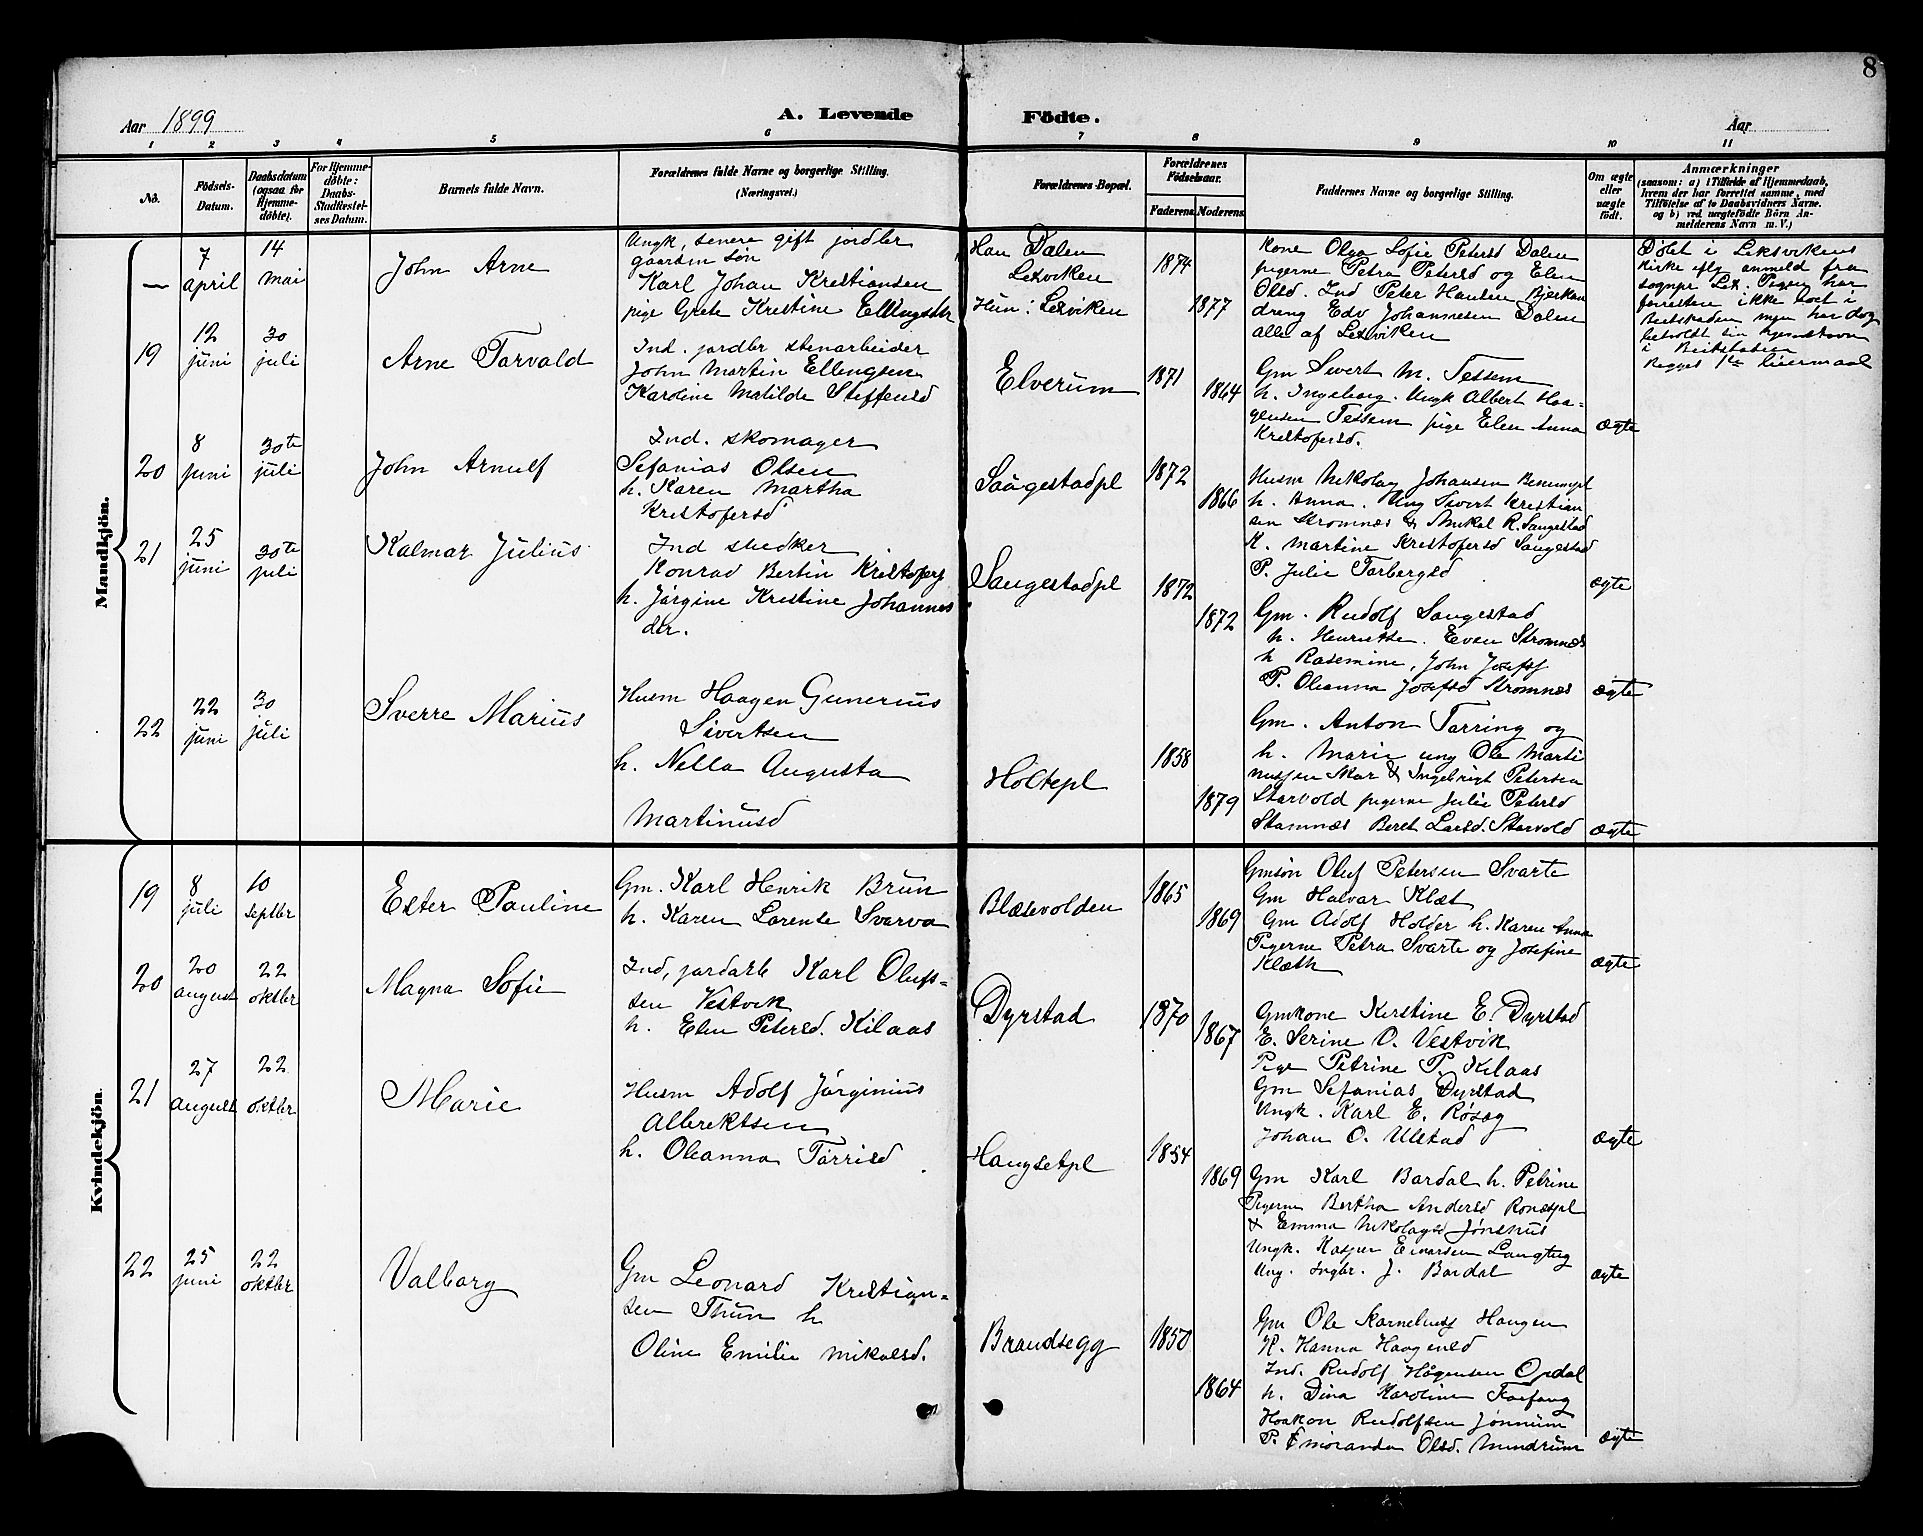 8
Aar 1899
A. Levende Födte.
Aar
1 2 3 4 5 6 7 8 9 10 11
No.
Födsels-Datum.
Daabsdatum (ogsaa for Hjemme-döbte).
For Hjemme-döbte: Daabs-Stadfæstel-ses Datum.
Barnets fulde Navn.
Forældrenes fulde Navne og borgerlige Stilling. (Næringsvei.)
Forældrenes Bopæl.
Forældrenes Födselsaar.
Faderens Moderens
Faddernes Navne og borgerlige Stilling.
Om ægte eller uægte födt.
Anmærkninger (saasom: a) i Tilfælde af Hjemmedaab, hvem der har forrettet samme, med Tilföielse af to Daabsvidners Navne. og b) ved uægtefödte Börn An-melderens Navn m. V.)
Mandkjön.
— 7 april 14 mai
John Arne
Ungk, senere gift jordbr
gaardm søn
Karl Johan Kristiansen
pige Grete Kristine Ellingsdtr
Han Dalen
Lexviken
Hun: Lexviken
1874 1877
Kone Olga Sofie Petersd Dalen
pigerne Petra Petersd og Elen
Olsd. Ind Peter Hansen Bjerkan
dreng Edv Johannesen Dalen
alle af Lexviken
Døbt i Leksvikens
kirke eflg anmeld fra
sognpr Lex. Pigen har
forresten ikke boet i
Beitstaden men har dog
beholdt sin hjemstavn
i Beitstaden
Begges 1ste leiermaal
19 12 juni 30 juli
Arne Torvald
Ind. jordbr stenarbeider
John Martin Ellingsen
Karoline Matilde Steffensd
Elverum
1871 1864
Gm Sivert M. Tessem
h. Ingeborg. Ungk Albert Haa-
gensen Tessem pige Elen Anna
Kristofersd.
ægte
20 8 juni 30te juli
John Arnulf
Ind. skomager
Sefanias Olsen
h. Karen Martha
Kristofersd
Saagestadpl
1872 1866
Husm Nikolay Johansen
h. Anna. Ung Sivert Kristian
sen Stromnes & Mikal R. Saugestad
K. Martine Kristofersd Saugestad
P. Julie Torbergsd
ægte
21 25 juni 30te juli
Kalmar Julius
Ind snedker
Konrad Bertin Kristofers
h. Jørgine Kristine Johannes
dtr.
Saugestadpl
1872 1872
Gm. Rudolf Saugestad
h. Henriette. Even Stromnes
h Rasemine, John Josefsf
P. Oleanna Josefsd Stromnes
ægte
22 22 juni 30 juli
Sverre Marius
Husm Haagen Gunerius
Sivertsen
h. Nella Augusta
Martinusd
Holtepl
1858 1879
Gm. Anton Tørring og
h. Marie ung Ole Marti
nussen Mar & Ingebrigt Petersen
Starvold pigerne Julie Petersd
Stamnes Beret Larsd. Starvold
ægte
Kvindekjön.
19 8 juli 10 septbr
Ester Pauline
Gm. Karl Henrik Brun
h. Karen Lorense Svarva
Blæsevolden
1865 1869
Gmsøn Oluf Petersen Svarte
Gm Halvar Klæt
Gm Adolf Holder h. Karen Anna
Pigerne Petra Svarte og Josefine
Klæth
ægte
20 20 august 22 oktbr
Magna Sofie
Ind, jordarb Karl Olufs-
sen Vestvik
h. Elen Petersd. Kilaas
Dyrstad
1870 1867
Gmkone Kirstine E. Dyrstad
E. Serine O. Vestvik
Pige Petrine P. Kilaas
Gm Sefanias Dyrstad
Ungk. Karl E. Røseg
Johan O. Ulstad
ægte
21 27 august 22 oktbr
Marie
Husm Adolf Jørginius
Albrektsen
h. Oleanna Tørrisd
Haugsetpl
1854 1869
Gm Karl Bardal h. Petrine
Pigerne Bertha Andersd Ronespl
& Emma Nikolaysd Jønshus
Ungk. Kasper Einarsen Langtug
Ung. Ingbr. J. Bardal
ægte
22 25 juni 22 oktbr
Valborg
Gm Leonard Kristian-
sen Thun h
Oline Emilie Mikalsd.
Brandsegg
1850 1864
Gm Ole Kornelius Haugen
K. Hanna Haagensd
Ind. Rudolf Hågensen Opdal
h. Dina Karoline Forfang
Haakon Rudolfsen Jønnum
P. Emoranda Olsd. Mundrum
ægte